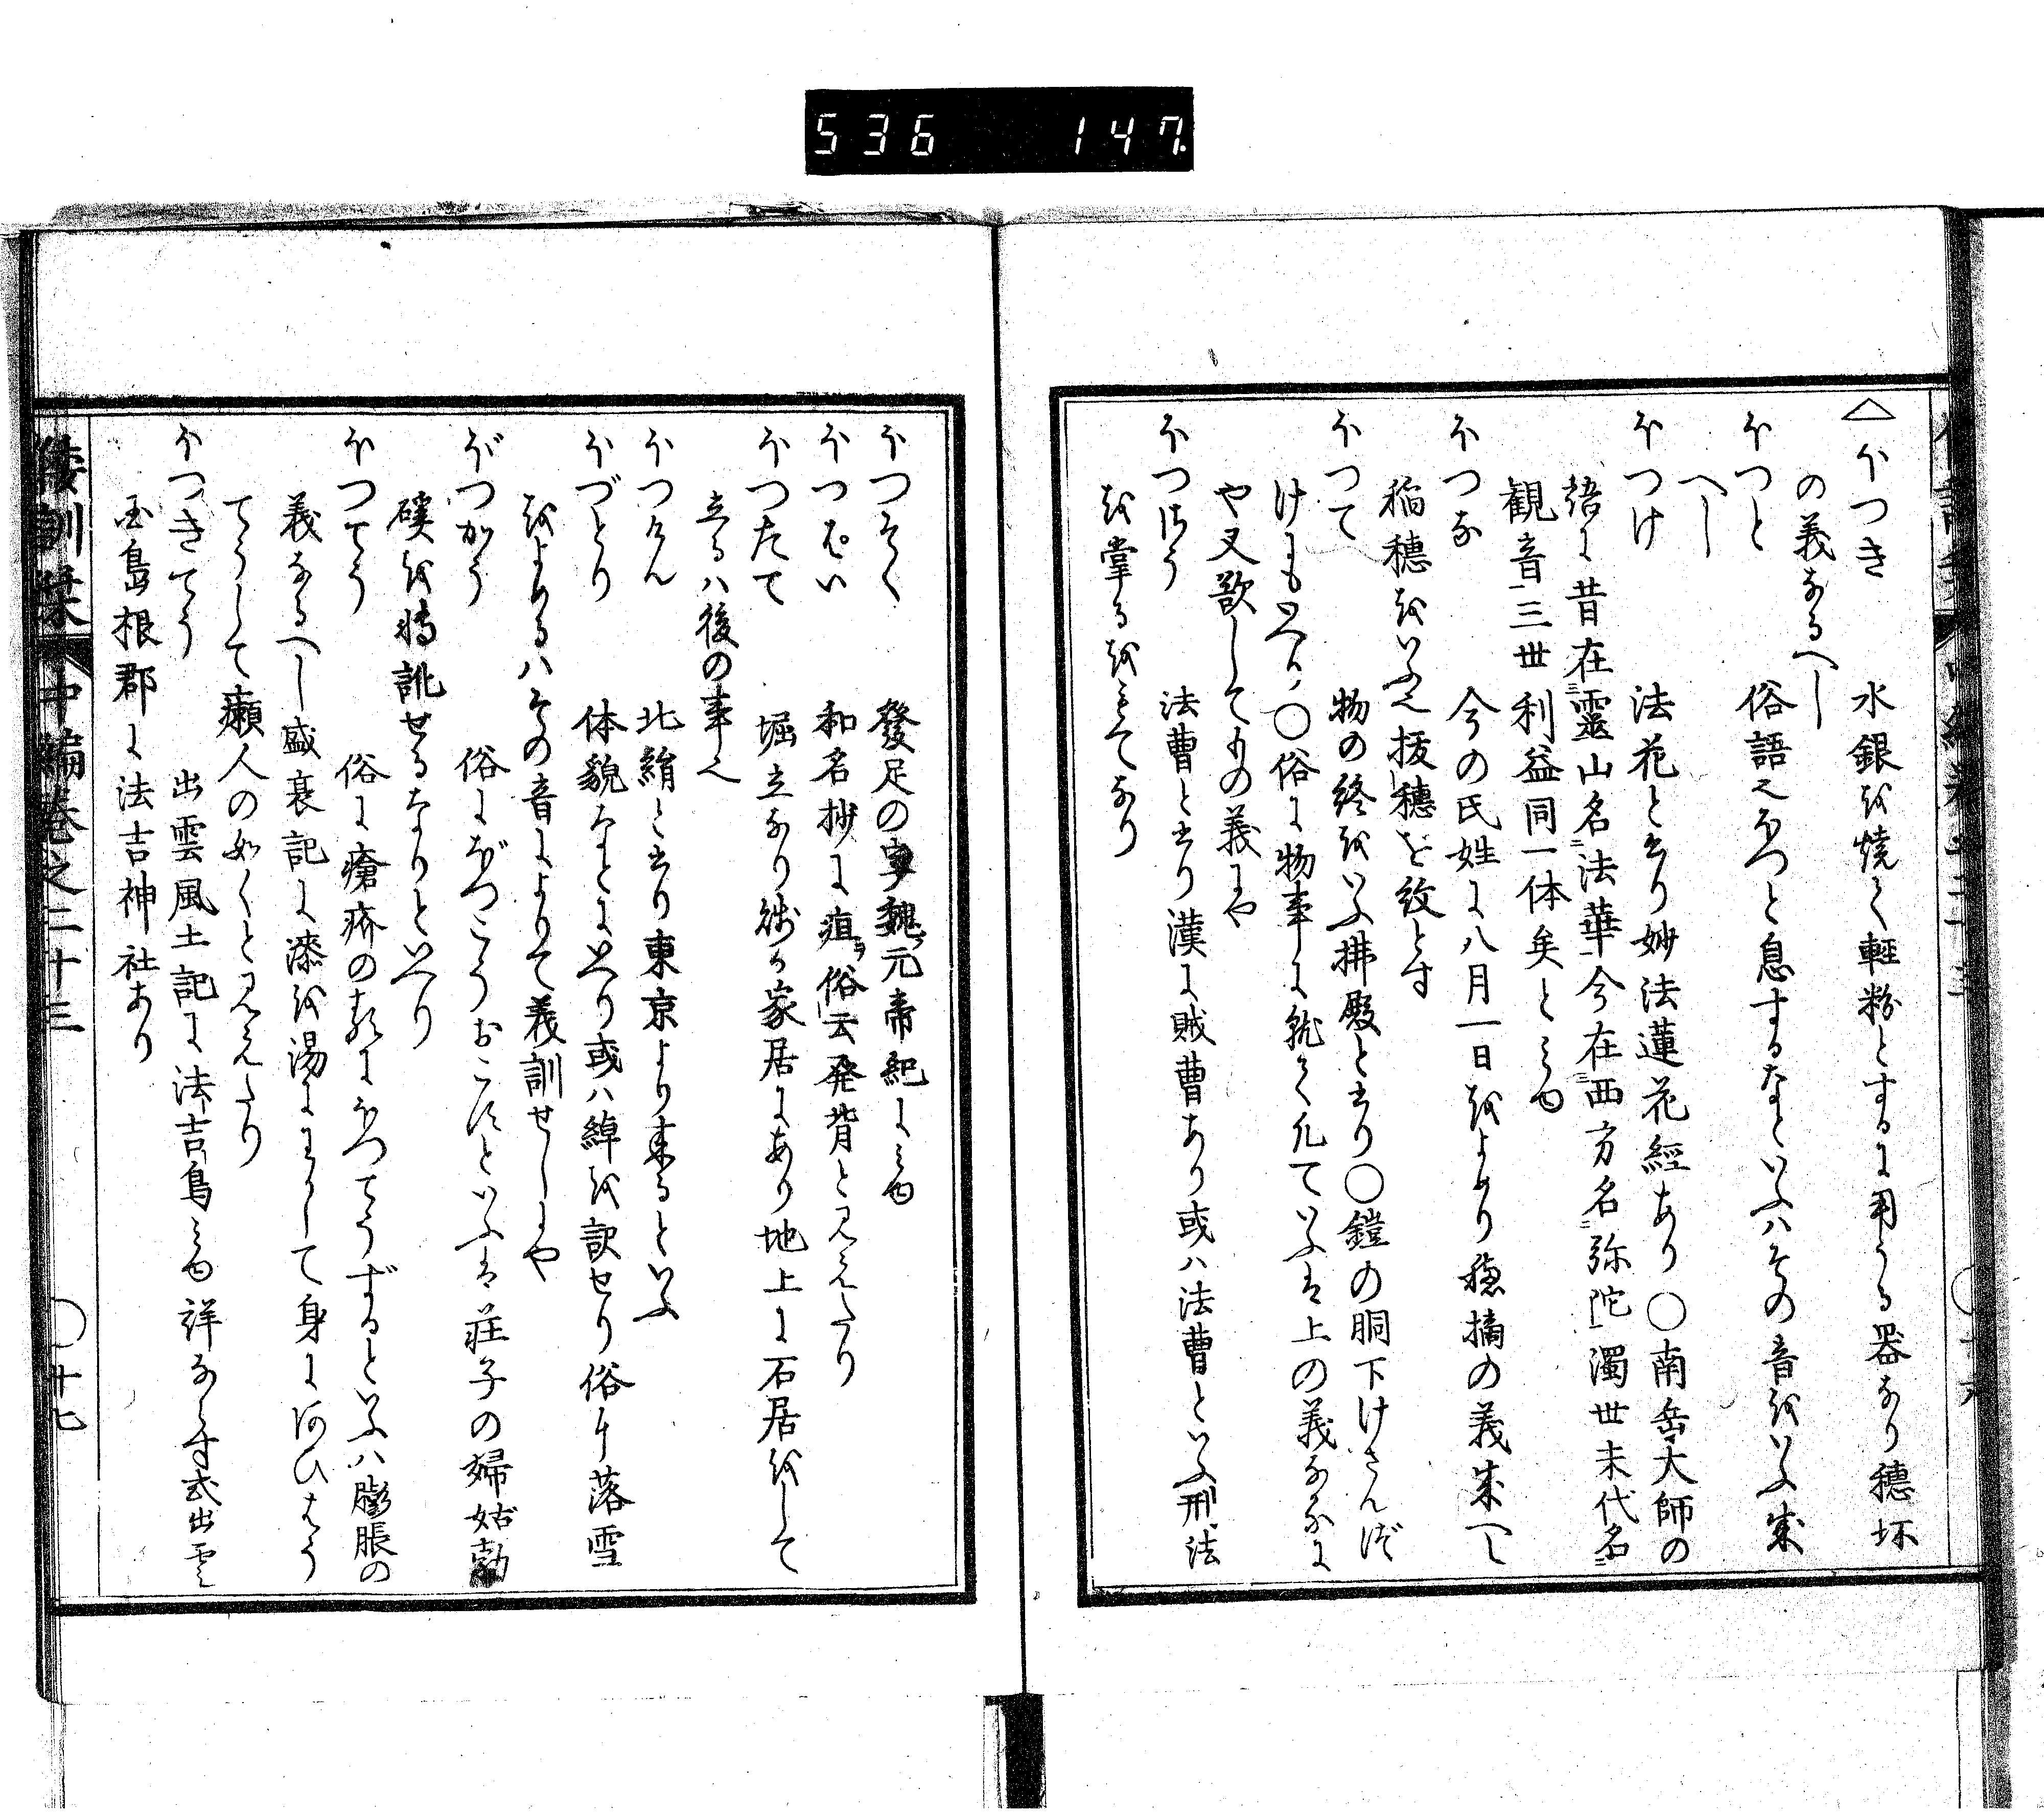 536 147
△ほつき 水銀を焼く軽粉とするに用うる器なり穂坏
の義なるへし
ほつと 俗語也ほつと息するなといふハその音をいふ成
へし
ほつけ 法花と書り妙法蓮花經あり○南岳大師の
語に昔在霊山名法華今在西方名弥陀濁世末代名
観音三世利益同一体矣とミゆ
ほつな 今の氏姓に八月一日をよめり穂摘の義成へし
稲穂をいふ也抜穂を紋とす
ほつて 物の終をいふ拂殿と書り○鎧の胴下けさんず
けにもいへり○俗に物事に就く凡ていふは上の義なるに
や又欲してもの義にや
ほつさう 法曹と書り漢に賊曹あり或ハ法曹といふ刑法
を掌るをミてなり
ほつそく 發足の字魏元帝紀にミゆ
ほつはい 和名抄に疽俗云発背と見えたり
ほつたて 堀立なり賤か家居にあり地上に石居をして
立るハ後の事也
ほつけん 北絹と書り東京より来るといふ
ほづとり 体貌なとにいへり或ハ綽を訳せり俗に落雪
をよめるハその音によりて義訓せしにや
ぼつかう 俗にぼつこうおこすといふは荘子の婦姑勃
磎を轉訛せるなりといへり
ほつてう 俗に瘡疥の類にほつてうずるといふハ膨脹の
義なるへし盛衰記に漆を湯にわかして身にあひほう
てうして癩人の如くと見えたり
ほつきてう 出雲風土記に法吉鳥ミゆ詳ならす式出雲
国島根郡に法吉神社あり
倭訓栞 中編巻之二十三 ○十七